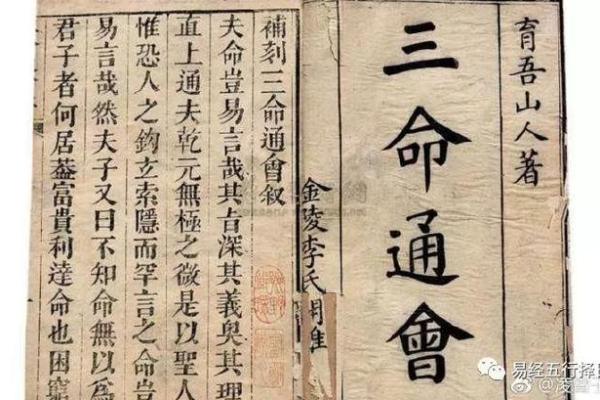 育吾山人著
三命通會
金陵李氏
補刻三命通會叙
夫命豈易言哉其㫖深其義奥其理
直上通夫乾元無極之微是以聖人
惟恐人之鈎立索隱而罕言之命豈
易言哉然夫子又曰不知命無以爲
君子者何居葢富貴利達命也困窮
易经五行择
@凌